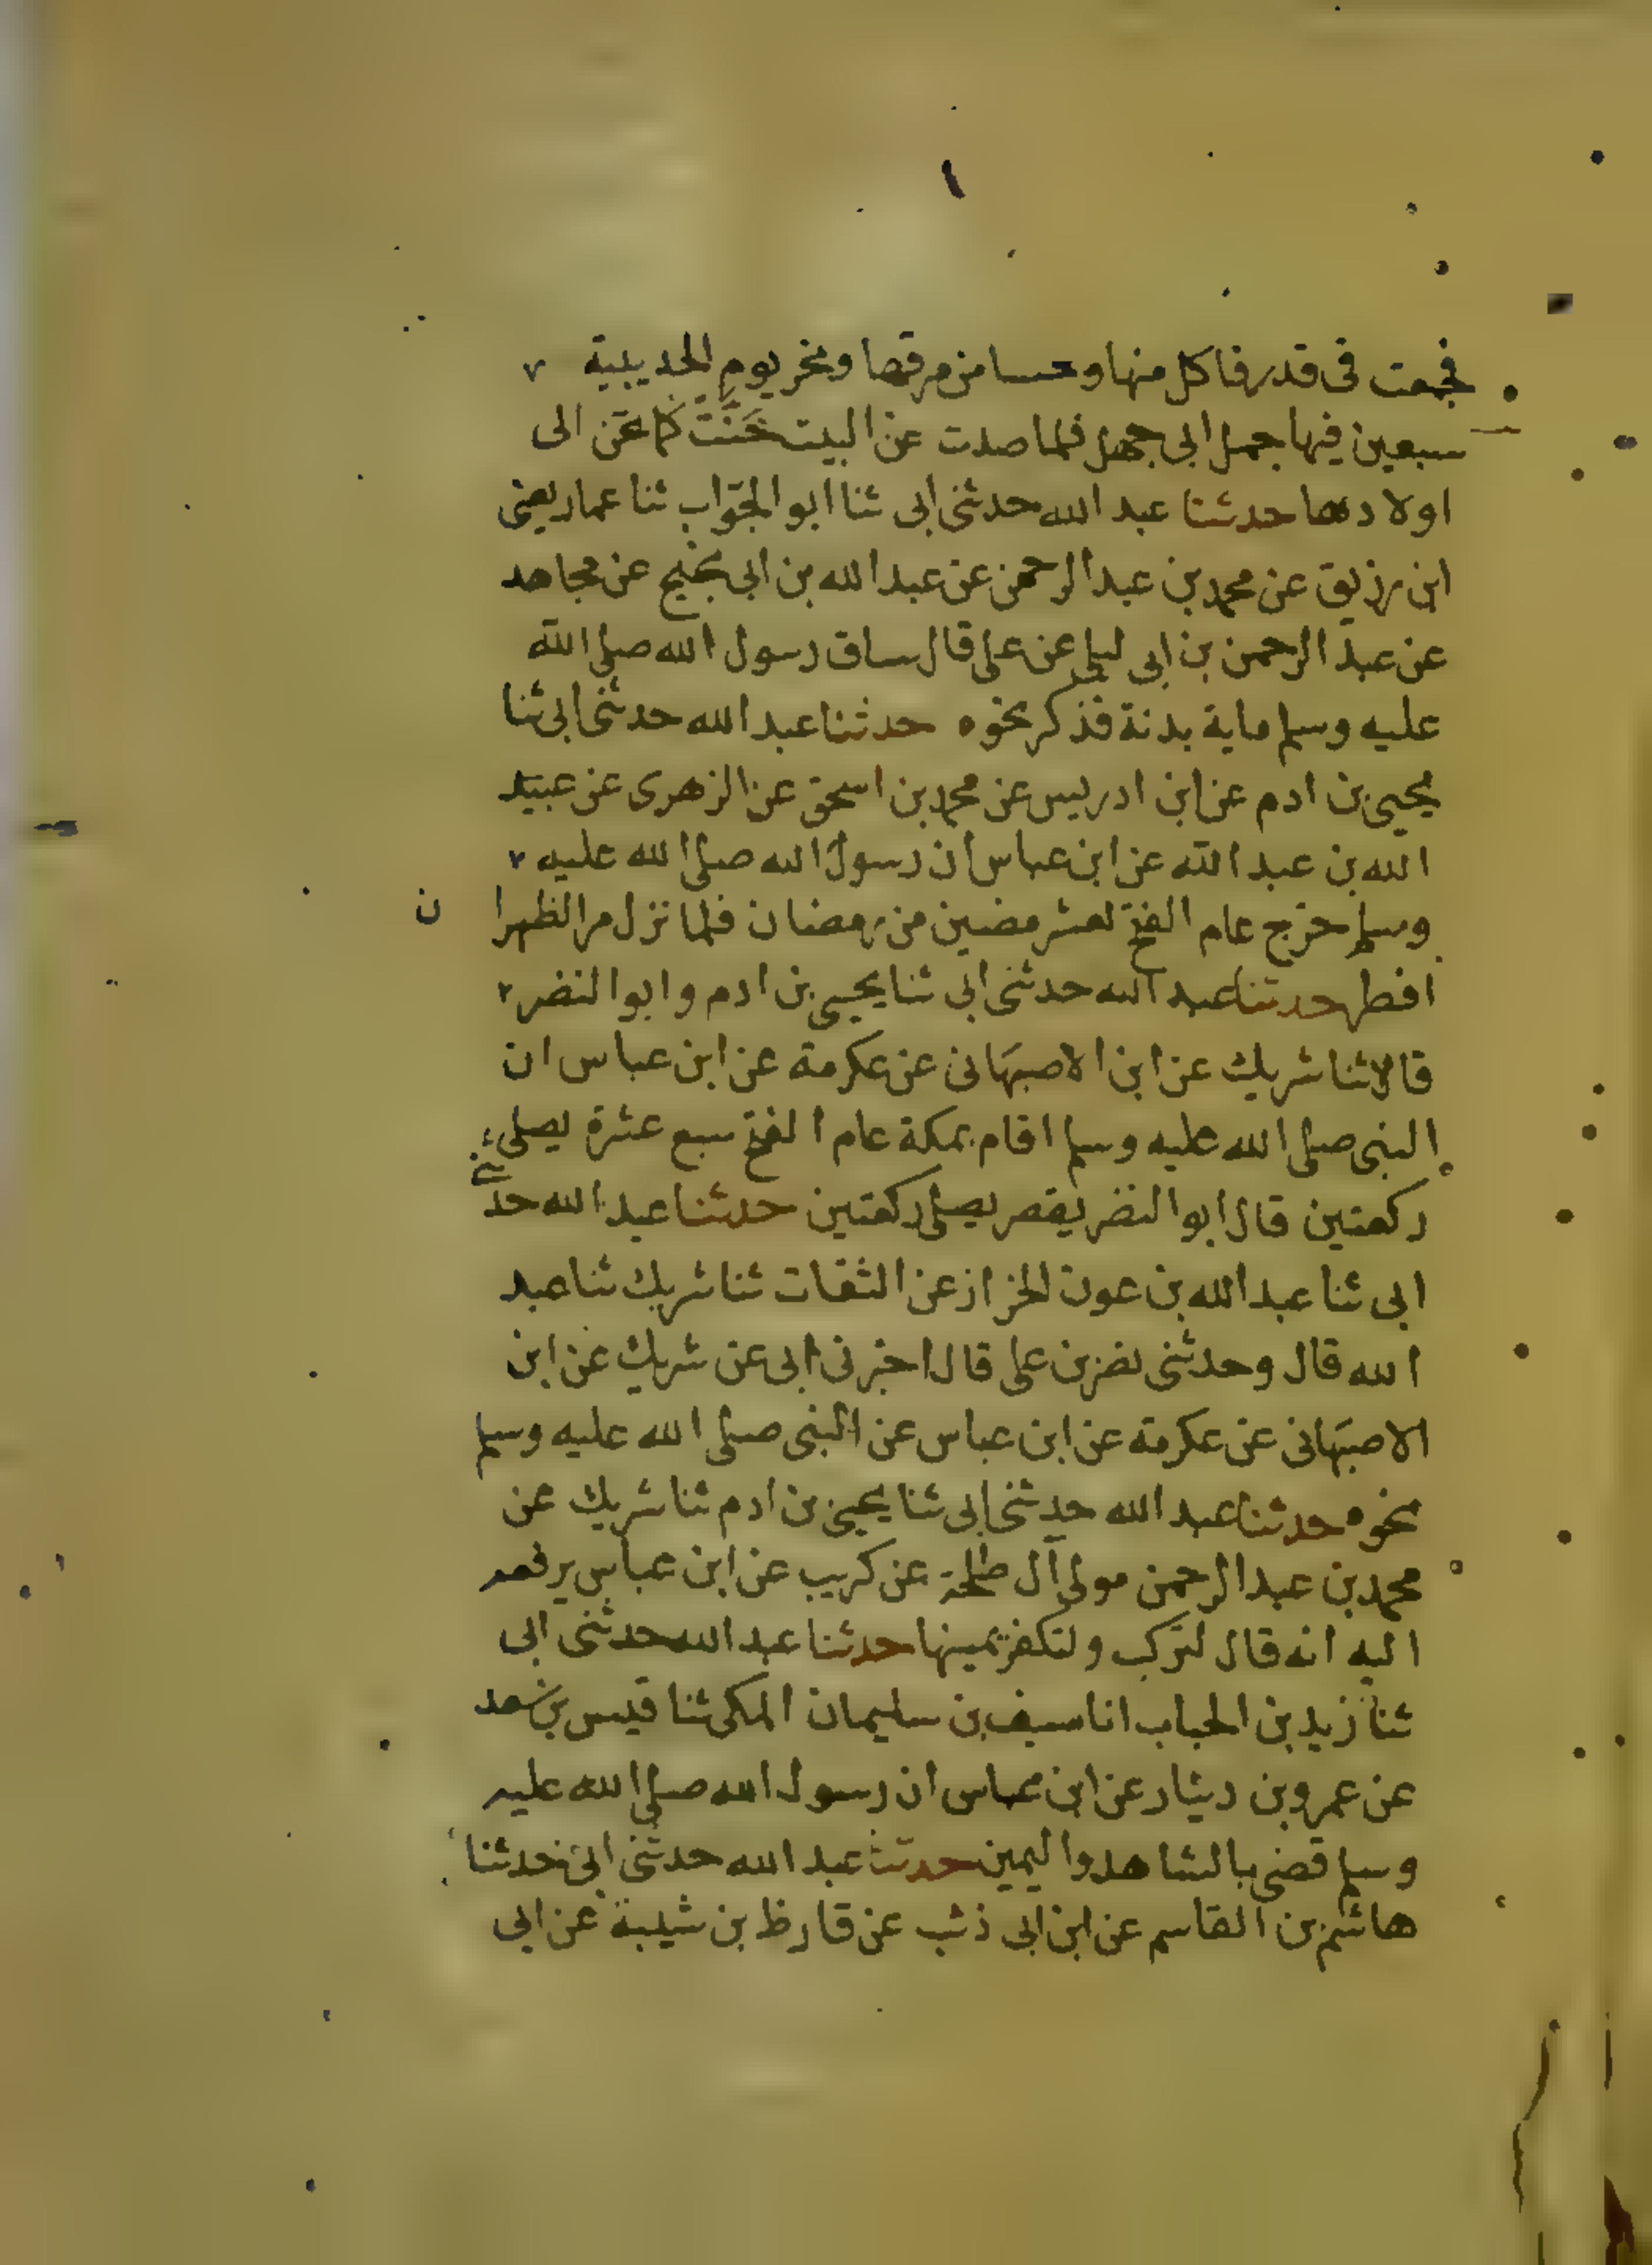 ١
فجمعت فى قدر فاكل منها وحسا من مرقها ونحر يوم الحديبية
سبعين فيها جمل ابى جهل فلما صدت عن البيت حَنَّتْ كما تحن الى
اولادها حدثنا عبد الله حدثنى ابى ثنا ابو الجوّاب ثنا عمار يعنى
ابن رزيق عن محمد بن عبد الرحمن عن عبد الله بن ابى نجيح عن مجاهد
عن عبد الرحمن بن ابى ليلى عن على قال ساق رسول الله صلى الله
عليه وسلم ماية بدنة فذكر نحوه حدثنا عبد الله حدثنى ابى ثنا
يحيى بن ادم عن ابن ادريس عن محمد بن اسحق عن الزهرى عن عبيد
الله بن عبد الله عن ابن عباس ان رسول الله صلى الله عليه
وسلم خرج عام الفتح لعشر مضين من رمضان فلما نزل مر الظهرا ن
افطر حدثنا عبد الله حدثنى ابى ثنا يحيى بن ادم وابو النضر
قالا ثنا شريك عن ابن الاصبهَانى عن عكرمة عن ابن عباس ان
النبى صلى الله عليه وسلم اقام بمكة عام الفتح سبع عشرة يصلى
ركعتين قال ابو النضر يقصر يصلى ركعتين حدثنا عبد الله حدثنى
ابى ثنا عبد الله بن عون الخراز عن الثقات ثنا شريك ثنا عبد
الله قال وحدثنى نصر بن على قال اخبرنى ابى عن شريك عن ابن
الاصبهَانى عن عكرمة عن ابن عباس عن النبى صلى الله عليه وسلم
نحوه حدثنا عبد الله حدثنى ابى ثنا يحيى بن ادم ثنا شريك عن
محمد بن عبد الرحمن مولى آل طلحة عن كريب عن ابن عباس يرفعه
اليه انه قال لتركب ولتكفر يمينها حدثنا عبد الله حدثنى ابى
ثنا زيد بن الحباب انا سيف بن سليمان المكى ثنا قيس بن سعد
عن عمرو بن دينار عن ابن عباس ان رسول الله صلى الله عليه
وسلم قضى بالشاهد واليمين حدثنا عبد الله حدثنى ابى حدثنا
هاشم بن القاسم عن ابن ابى ذئب عن قارظ بن شيبة عن ابى